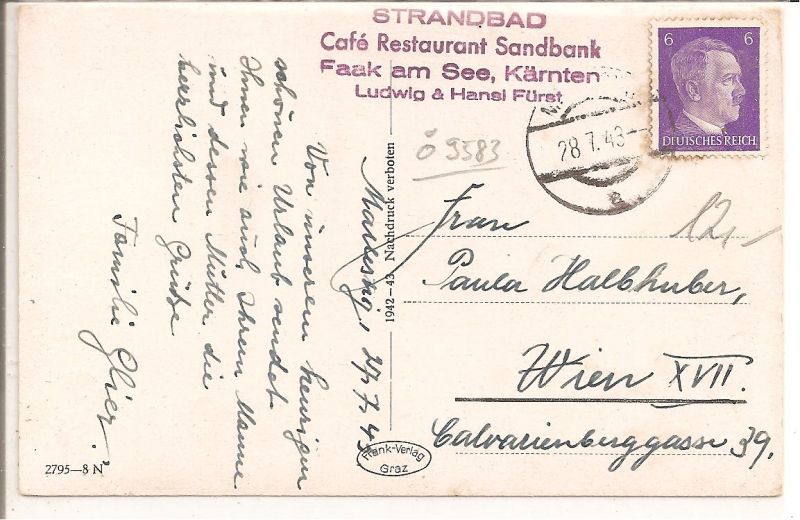 STRANDBAD
Café Restaurant Sandbank
Faak am See, Kärnten
Ludwig & Hansl Fürst
6 6
DEUTSCHES REICH
28.7.43
a
Ö 9583
12,-
Von unserem heurigem
schönen Urlaub sendet
Ihnen wie auch Ihrem Manne
und dessen Mutter die
herzlichsten Grüße
Familie
27.7.43
1942-43 Nachdruck verboten
Frau
Paula Halbhuber,
Wien XVII.
Calvarienberggasse 39.
Frank-Verlag
Graz
2795—8 N